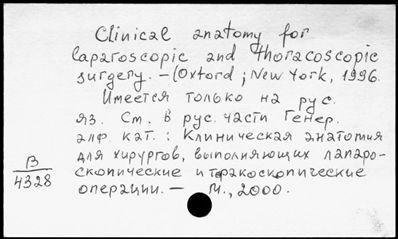 Clinical anatomy for
laparoscopic and thoracoscopic
surgery. – (Oxford ; New York, 1996.
Имеется только на рус.
яз. См. в рус. части Генер.
алф. кат. : Клиническая анатомия
для хирургов, выполняющих лапаро-
скопические и торакоскопические
операции. – М., 2000.
В
4328